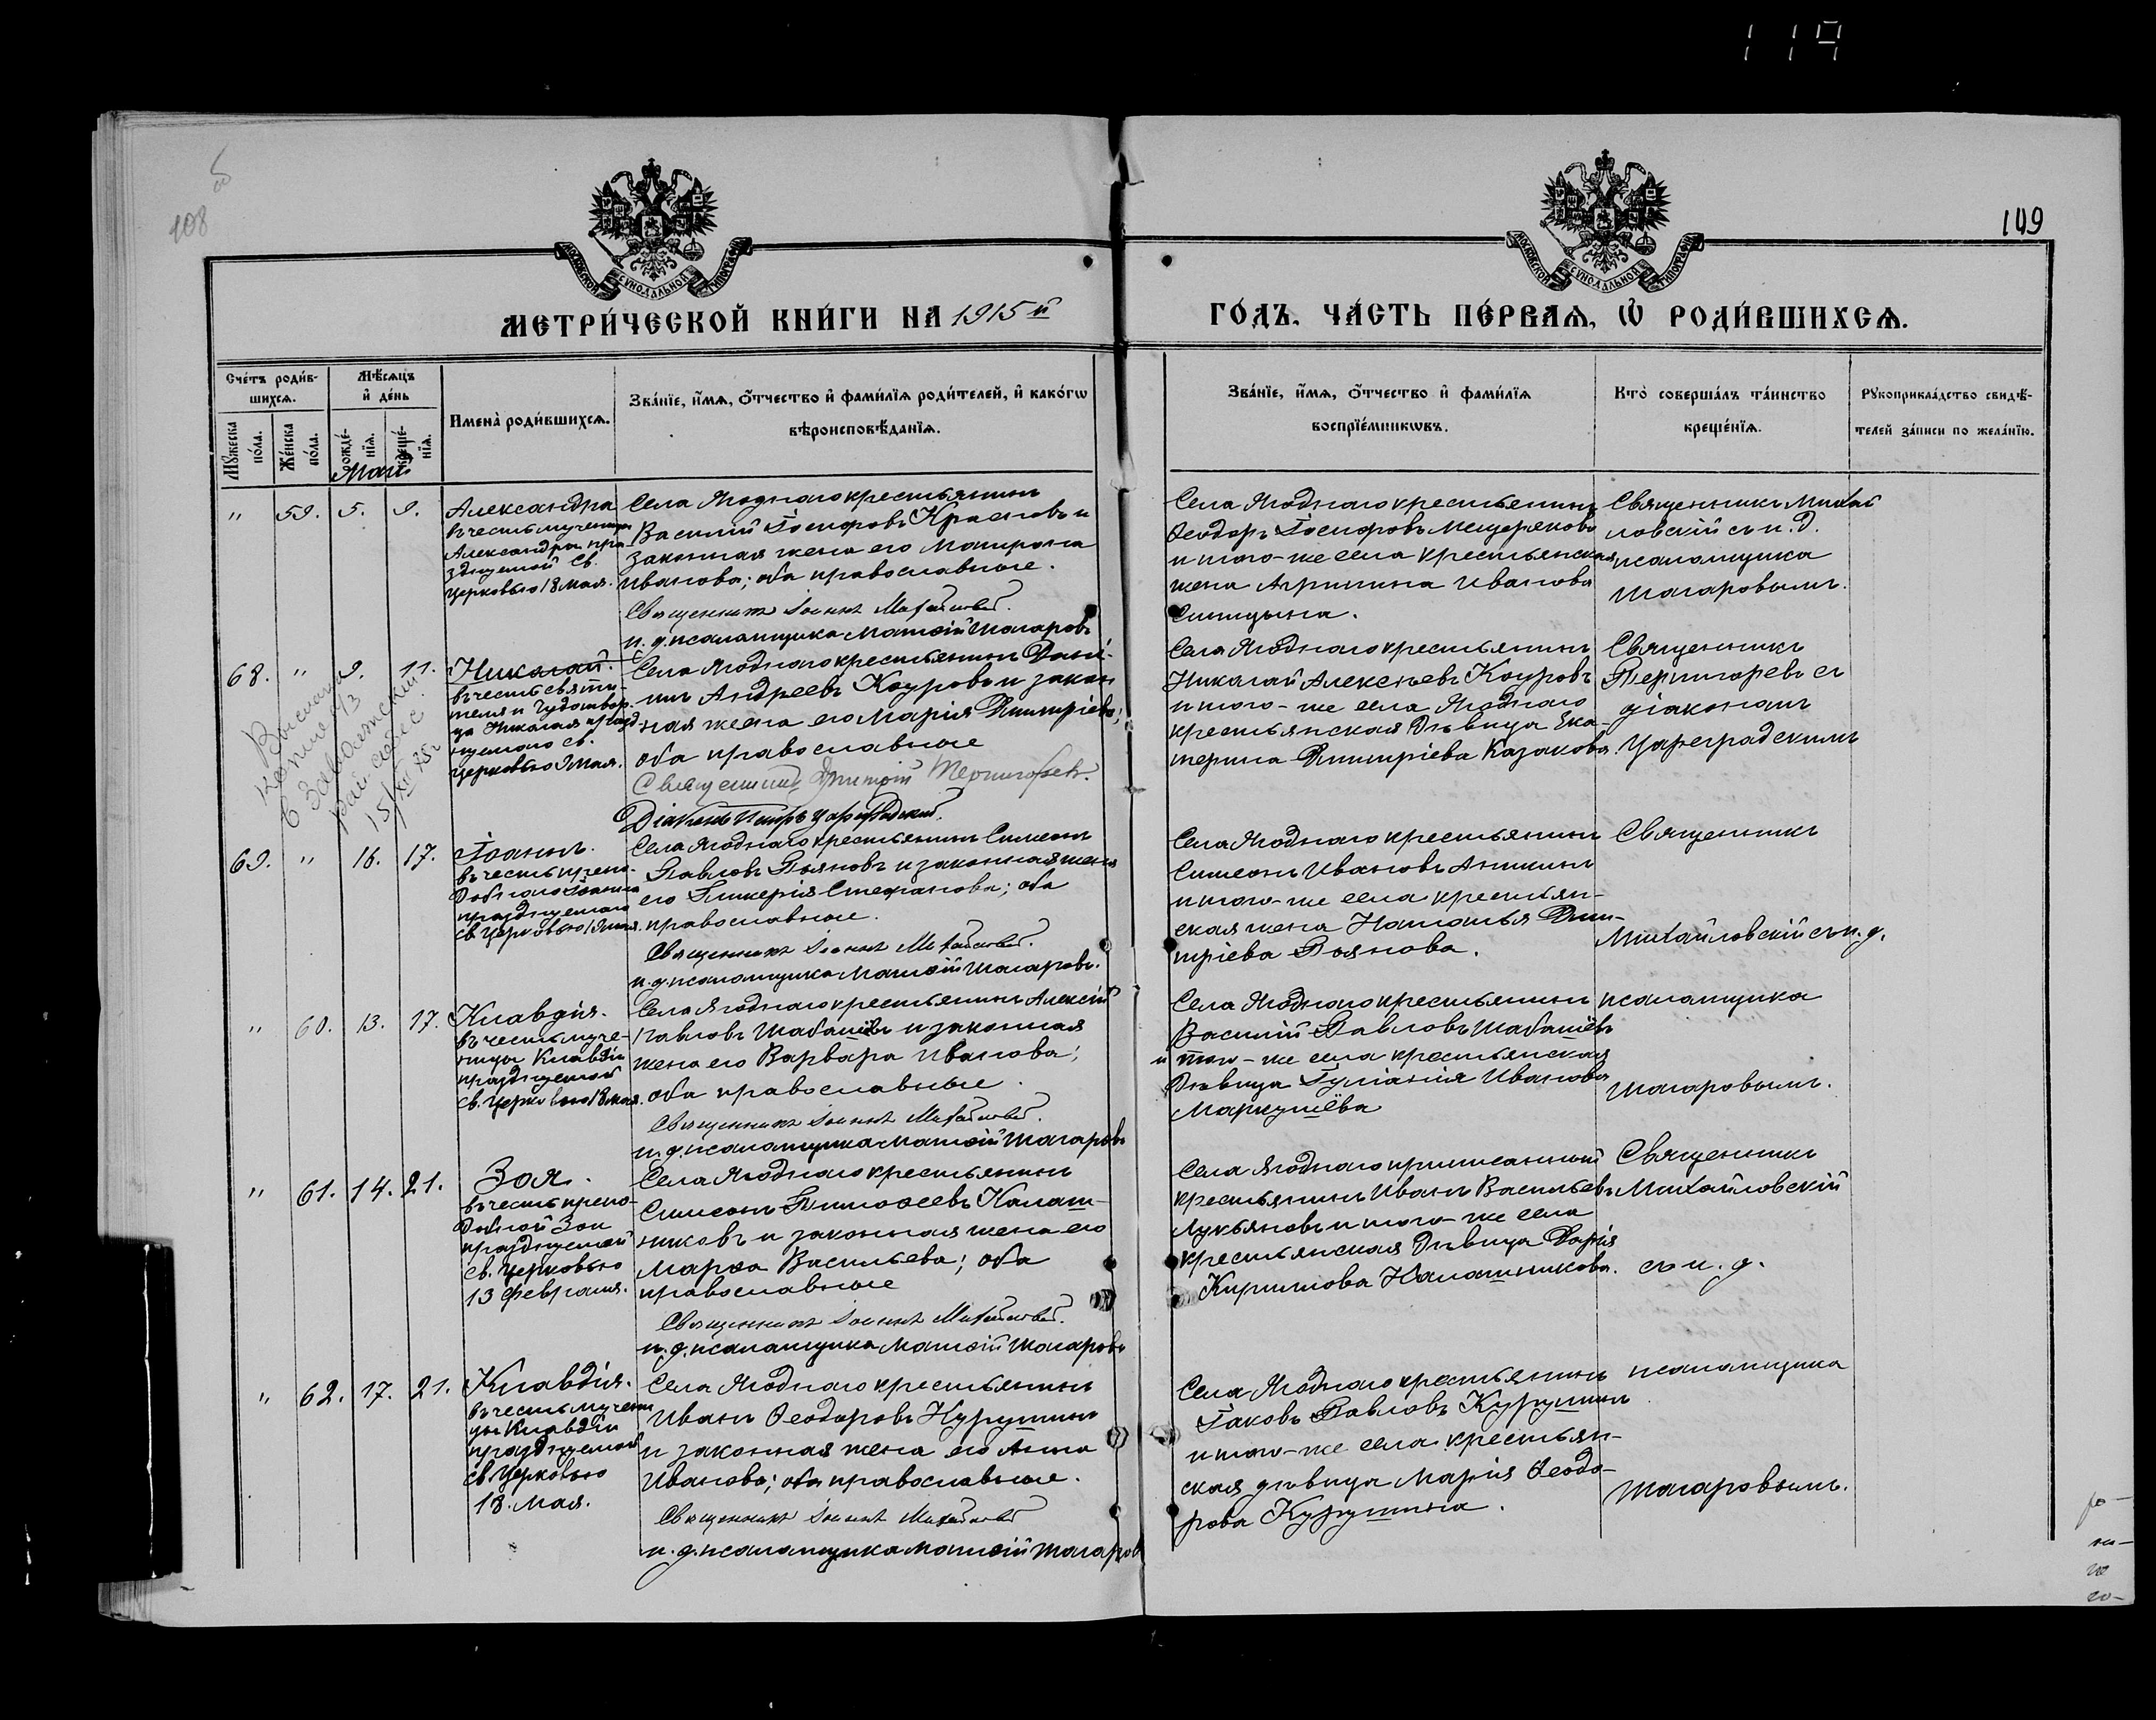 119
108
109
МОСКОВСКОЙ СУНОДАЛЬНОЙ ТИПОГРАФІИ
МОСКОВСКОЙ СУНОДАЛЬНОЙ ТИПОГРАФІИ
МЕТРИ́ЧЕСКОЙ КНИ́ГИ НА 1915й
ГО́ДЪ. ЧА́СТЬ ПЕ́РВАѦ, Ѿ РОДИ́ВШИХСѦ.
Сче́тъ роди́в-
шихсѧ.
Мꙋ́жеска
по́ла.
Же́нска
по́ла.
Мѣ́сѧцъ
и҆ де́нь
рожде́-
нїѧ.
креще́-
нїѧ.
Имена̀ роди́вшихсѧ.
Зва́нїе, и҆́мѧ, ѻ҆́тчество и҆ фами́лїѧ роди́телей, и҆ како́гѡ
вѣроисповѣ́данїѧ.
Зва́нїе, и҆́мѧ, ѻ҆́тчество и҆ фами́лїѧ
воспрїе́мникѡвъ.
Кто̀ соверша́лъ та́инство
креще́нїѧ.
Рꙋкоприкла́дство свидѣ́-
телей за́писи по жела́нїю.
Май
" 59. 5. 9.
Александра
въ честь мученицы
Александры пра-
зднуемой Св.
Церковью 18 мая.
Села Ягоднаго крестьянинъ
Василій Іосифовъ Красновъ и
законная жена его Матрона
Иванова; оба православные.
Священникъ Іоаннъ Михайловскій.
и. д. псаломщика Матѳій Шагаровъ
Села Ягоднаго крестьянинъ
Ѳеодоръ Іосифовъ Мещеряковъ
и того-же села крестьянская
жена Агрипина Иванова
Синицына.
Священникъ Михай
ловскій съ и. д.
псаломщика
Шагаровымъ.
68. " 9. 11.
Николай.
въ честь святи-
теля и Чудотвор-
ца Николая празд-
нуемаго Св.
Церковью 9 мая.
Села Ягоднаго крестьянинъ Дані-
илъ Андреевъ Кауровъ и закон
ная жена его Марія Димитріева;
оба православные
Священникъ Димитрій Терпигоревъ.
Діаконъ Петръ Цареградскій.
Села Ягоднаго крестьянинъ
Николай Алексѣевъ Кауровъ
и того-же села Ягоднаго
крестьянская дѣвица Ека-
терина Димитріева Казакова.
Священникъ
Терпигоревъ съ
діакономъ
Цареградскимъ
Выслана
копия
15/XII
69. " 16. 17.
Іоаннъ.
въ честь препо-
добнаго Іоанна
празднуемаго
св. Церковью 19 мая.
Села Ягоднаго крестьянинъ Симеонъ
Павловъ Бояновъ и законная жена
его Гликерія Стефанова; оба
православные.
Священникъ Іоаннъ Михайловскій.
и. д. псаломщика Матѳій Шагаровъ.
Села Ягоднаго крестьянинъ
Симеонъ Ивановъ Аникинъ
и того-же села крестьян-
ская жена Наталья Дими-
тріева Боянова.
Священникъ
Михайловскій съ и. д.
" 60. 13. 17.
Клавдія.
въ честь муче-
ницы Клавдіи
празднуемой
св. Церковью 18 мая.
Села Ягоднаго крестьянинъ Алексій
Павловъ Шабашёвъ и законная
жена его Варвара Иванова;
оба православные.
Священникъ Іоаннъ Михайловскій.
и. д. псаломщика Матѳій Шагаровъ
Села Ягоднаго крестьянинъ
Василій Павловъ Шабашёвъ
и того-же села крестьянская
дѣвица Іуліанія Иванова
Маркушёва
псаломщика
Шагаровымъ.
" 61. 14. 21.
Зоя.
въ честь препо-
добной Зои
празднуемой
св. Церковью
13 февраля.
Села Ягоднаго крестьянинъ
Симеонъ Тимоѳеевъ Калаш-
никовъ и законная жена его
Марѳа Васильева; оба
православные
Священникъ Іоаннъ Михайловскій.
и. д. псаломщика Матѳій Шагаровъ
Села Ягоднаго приписанный
крестьянинъ Иванъ Васильевъ
Лукьяновъ и того-же села
крестьянская дѣвица Дарія
Кирилова Калашникова.
Священникъ
Михайловскій
съ и. д.
" 62. 17. 21.
Клавдія.
въ честь мучени
цы Клавдіи
празднуемой
св. Церковью
18. мая.
Села Ягоднаго крестьянинъ
Иванъ Ѳеодоровъ Курушинъ
и законная жена его Анна
Иванова; оба православные.
Священникъ Іоаннъ Михайловскій
и. д. псаломщика Матѳій Шагаровъ
Села Ягоднаго крестьянинъ
Іаковъ Павловъ Курушинъ
и того-же села крестьян-
ская дѣвица Марія Ѳеодо-
рова Курушина.
псаломщика
Шагаровымъ.